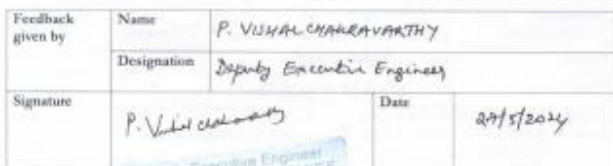 Feedback given by
Name
P. VISHAL CHAKRAVARTHY
Designation
Deputy Executive Engineer
Signature
P. Vishal chakravarthy
Date
27/5/2024
Executive Engineer